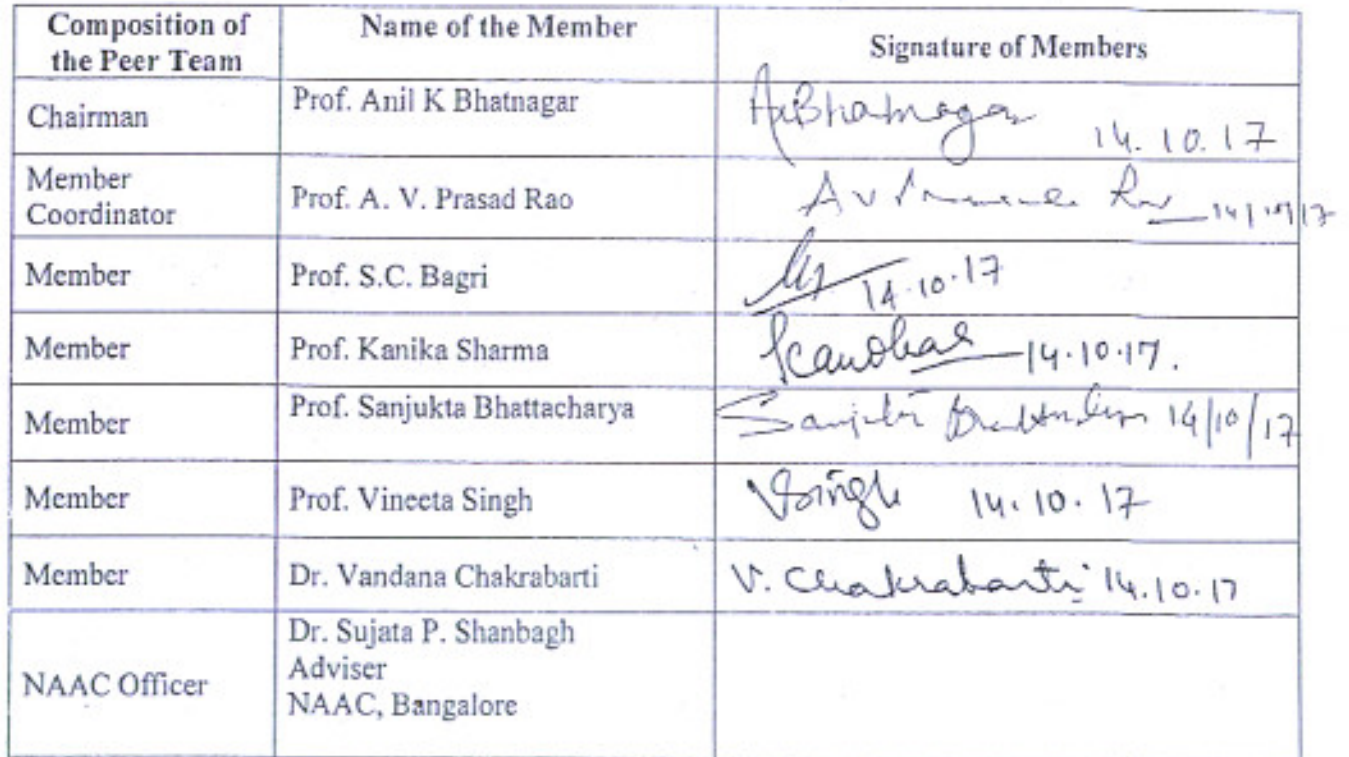 Composition of
the Peer Team
Name of the Member
Signature of Members
Chairman
Prof. Anil K Bhatnagar
AnBhatnagar 14.10.17
Member
Coordinator
Prof. A. V. Prasad Rao
A V Rao 14/10/17
Member
Prof. S.C. Bagri
14.10.17
Member
Prof. Kanika Sharma
14.10.17.
Member
Prof. Sanjukta Bhattacharya
14/10/17
Member
Prof. Vineeta Singh
VSingh 14.10.17
Member
Dr. Vandana Chakrabarti
V. Chakrabarti 14.10.17
NAAC Officer
Dr. Sujata P. Shanbagh
Adviser
NAAC, Bangalore